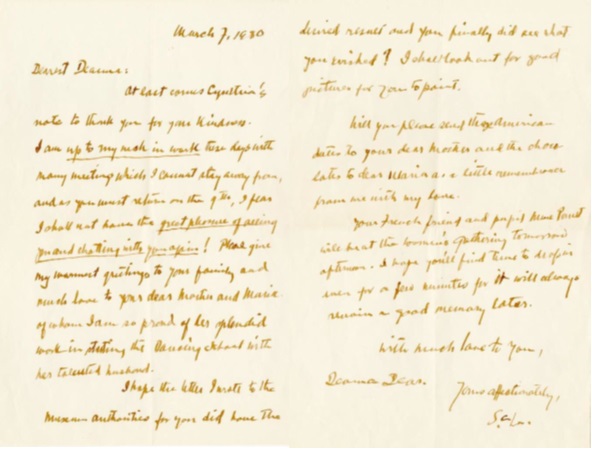 March 7, 1930
Dearest Deanna:
At last comes Cynthia's
note to thank you for your kindness.
I am up to my neck in work these days with
many meetings which I cannot stay away from,
and as you must return on the 9th, I fear
I shall not have the great pleasure of seeing
you and chatting with you again! Please give
my warmest greetings to your family and
much love to your dear Mother and Maria
of whom I am so proud of her splendid
work in starting the Dancing School with
her talented husband.
I hope the letter I wrote to the
Museum authorities for you did have the
desired result and you finally did see what
you wished? I shall look out for good
pictures for you to paint.
Will you please send the American
dates to your dear Mother and the choco-
lates to dear Maria as a little remembrance
from me with my love.
Your French friend and pupil Mme
will be at the Women's Gathering tomorrow
afternoon. I hope you'll find time to
even for a few minutes for it will always
remain a good memory later.
With much love to you,
Deanna Dear.
Yours affectionately,